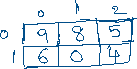 0 1 2
0 9 8 5
1 6 0 4